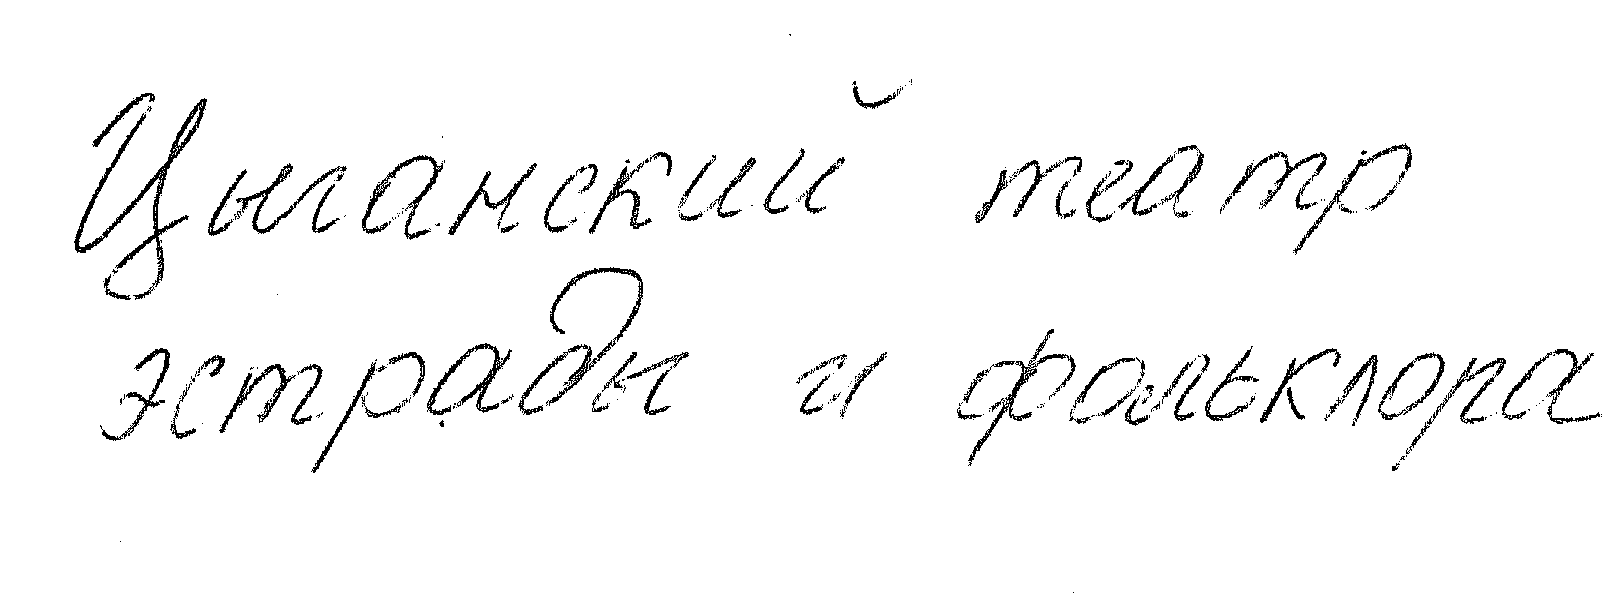 Цыганский театр
эстрады и фольклора